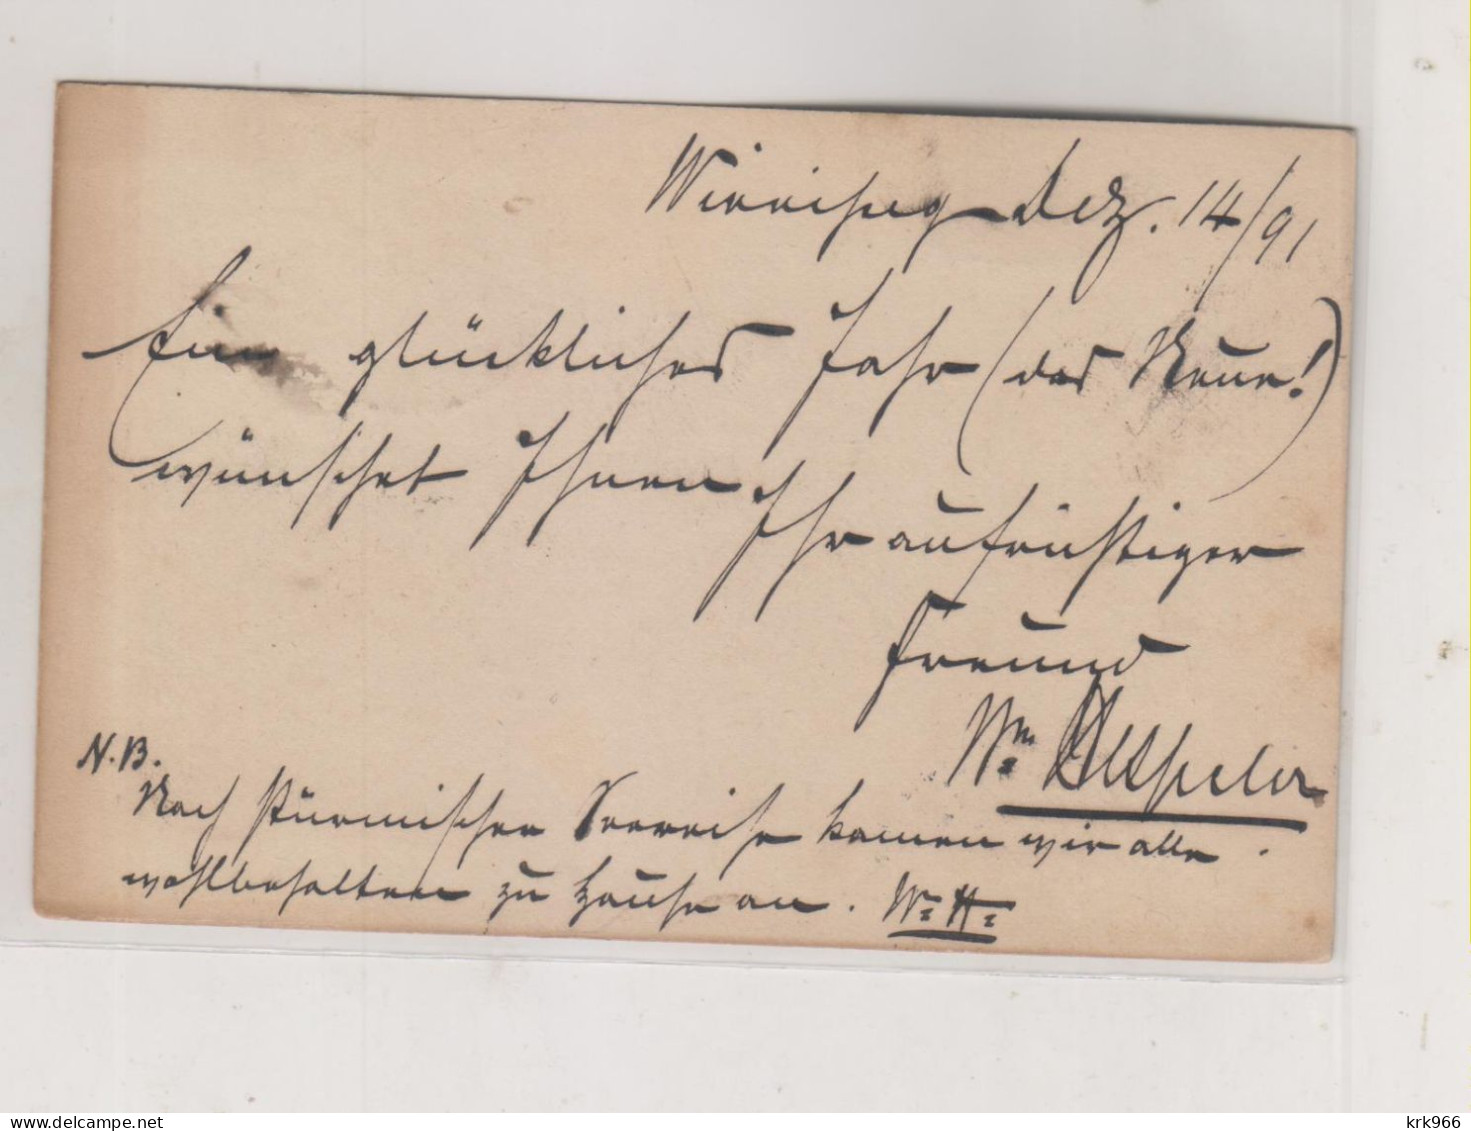 Winnipeg Dez. 14/91
Ein glückliches Jahr (das Neue!)
wünschet Ihnen
Ihr aufrichtiger
Freund
Wm Hespeler
N.B.
Nach stürmischer Seereise kamen wir alle
wohlbehalten zu Hause an. W. H.
krk966